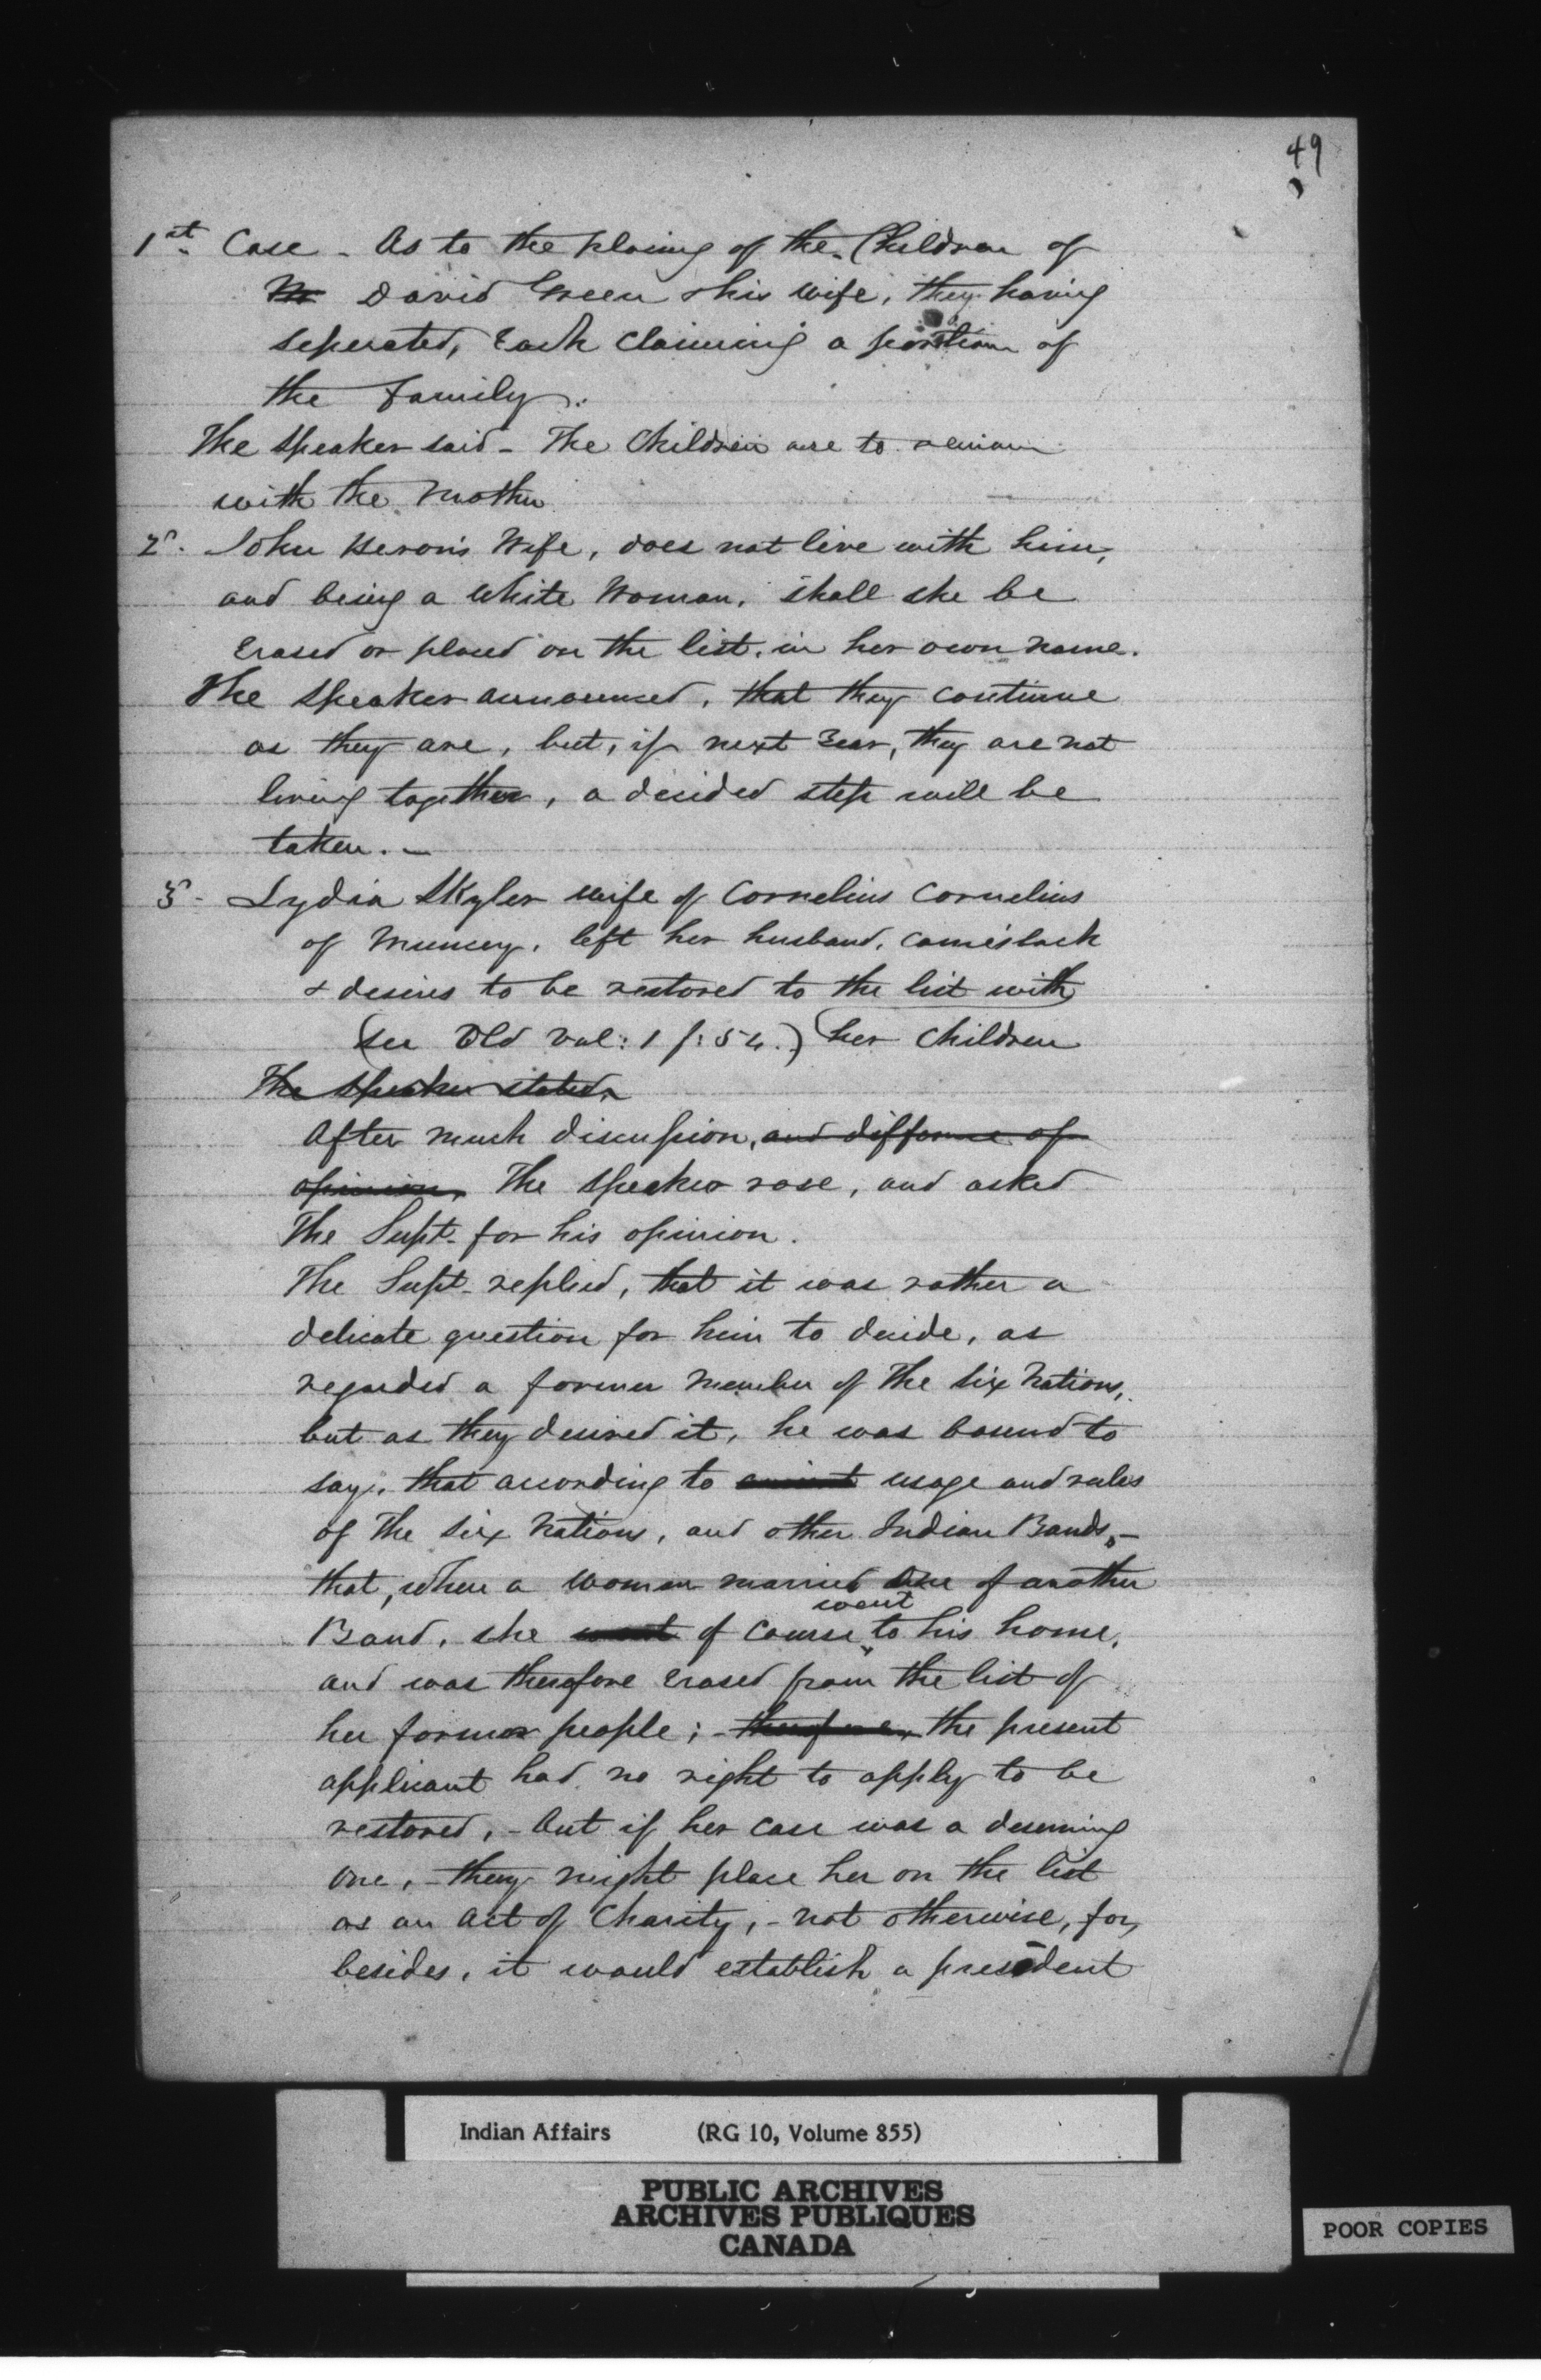 49
1st Case - As to the placing of the Children of
Mr David Green & his wife, they having
seperated, Each claiming a portion of
the family.
The Speaker said - The Children are to remain
with the Mother
2d. John Heron's Wife, does not live with him,
and being a White Woman, shall she be
Erased or placed on the list, in her own name.
The Speaker announced, that they continue
as they are, but, if next Year, they are not
living together, a decided step will be
taken. -
3d - Lydia Skyler wife of Cornelius Cornelius
of Muncey, left her husband, comes back
& desires to be restored to the list with
(See Old Vol: 1 f: 54.) her Children
The Speaker stated,
After much discussion, and difference of
opinion, The Speaker rose, and asked
The Supt. for his opinion.
The Supt. replied, that it was rather a
delicate question for him to decide, as
regarded a former Member of The Six Nations,
but as they desired it, he was bound to
say, that according to usage and rules
of The Six Nations, and other Indian Bands, -
that, when a Woman married One of another
went
Band, she went of course to his home,
and was therefore Erased from the list of
her former people; - therefore, the present
applicant had no right to apply to be
restored, - but if her case was a deserving
one, - they might place her on the list
as an Act of Charity, - not otherwise, for,
besides, it would establish a presedent
Indian Affairs (RG 10, Volume 855)
PUBLIC ARCHIVES
ARCHIVES PUBLIQUES
CANADA
POOR COPIES